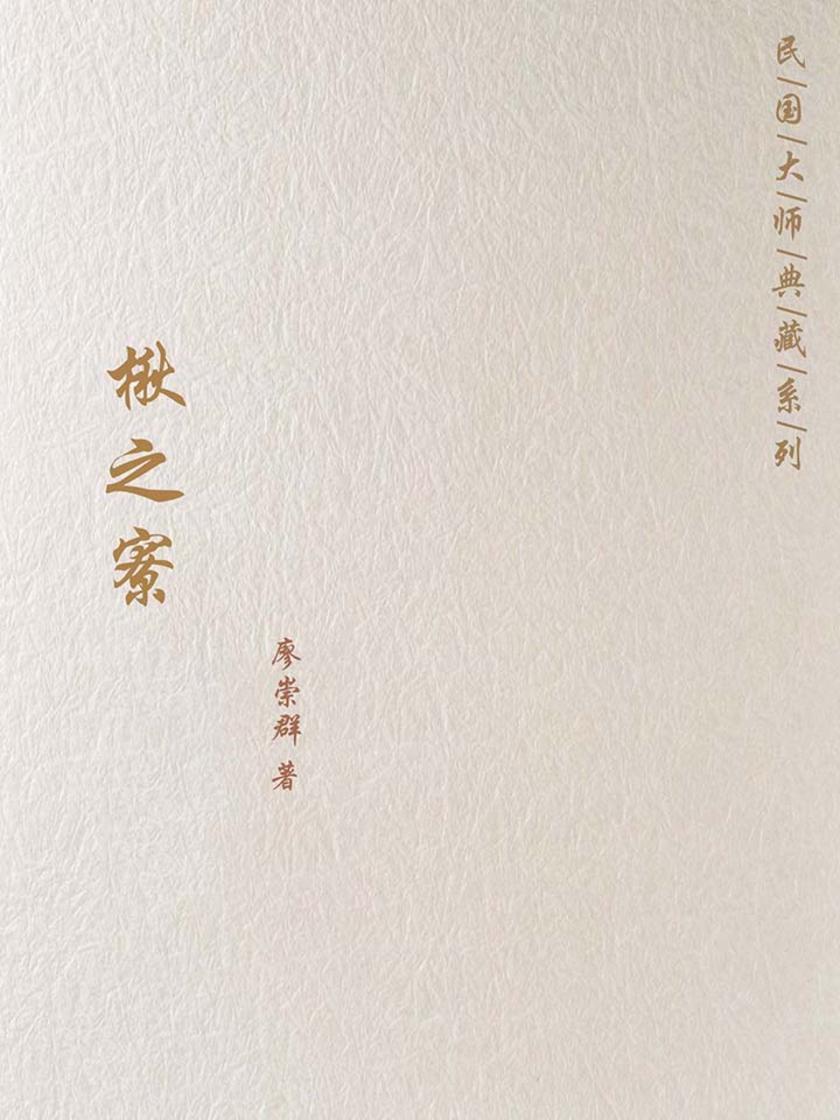 民国大师典藏系列
楸之寮
廖崇群 著